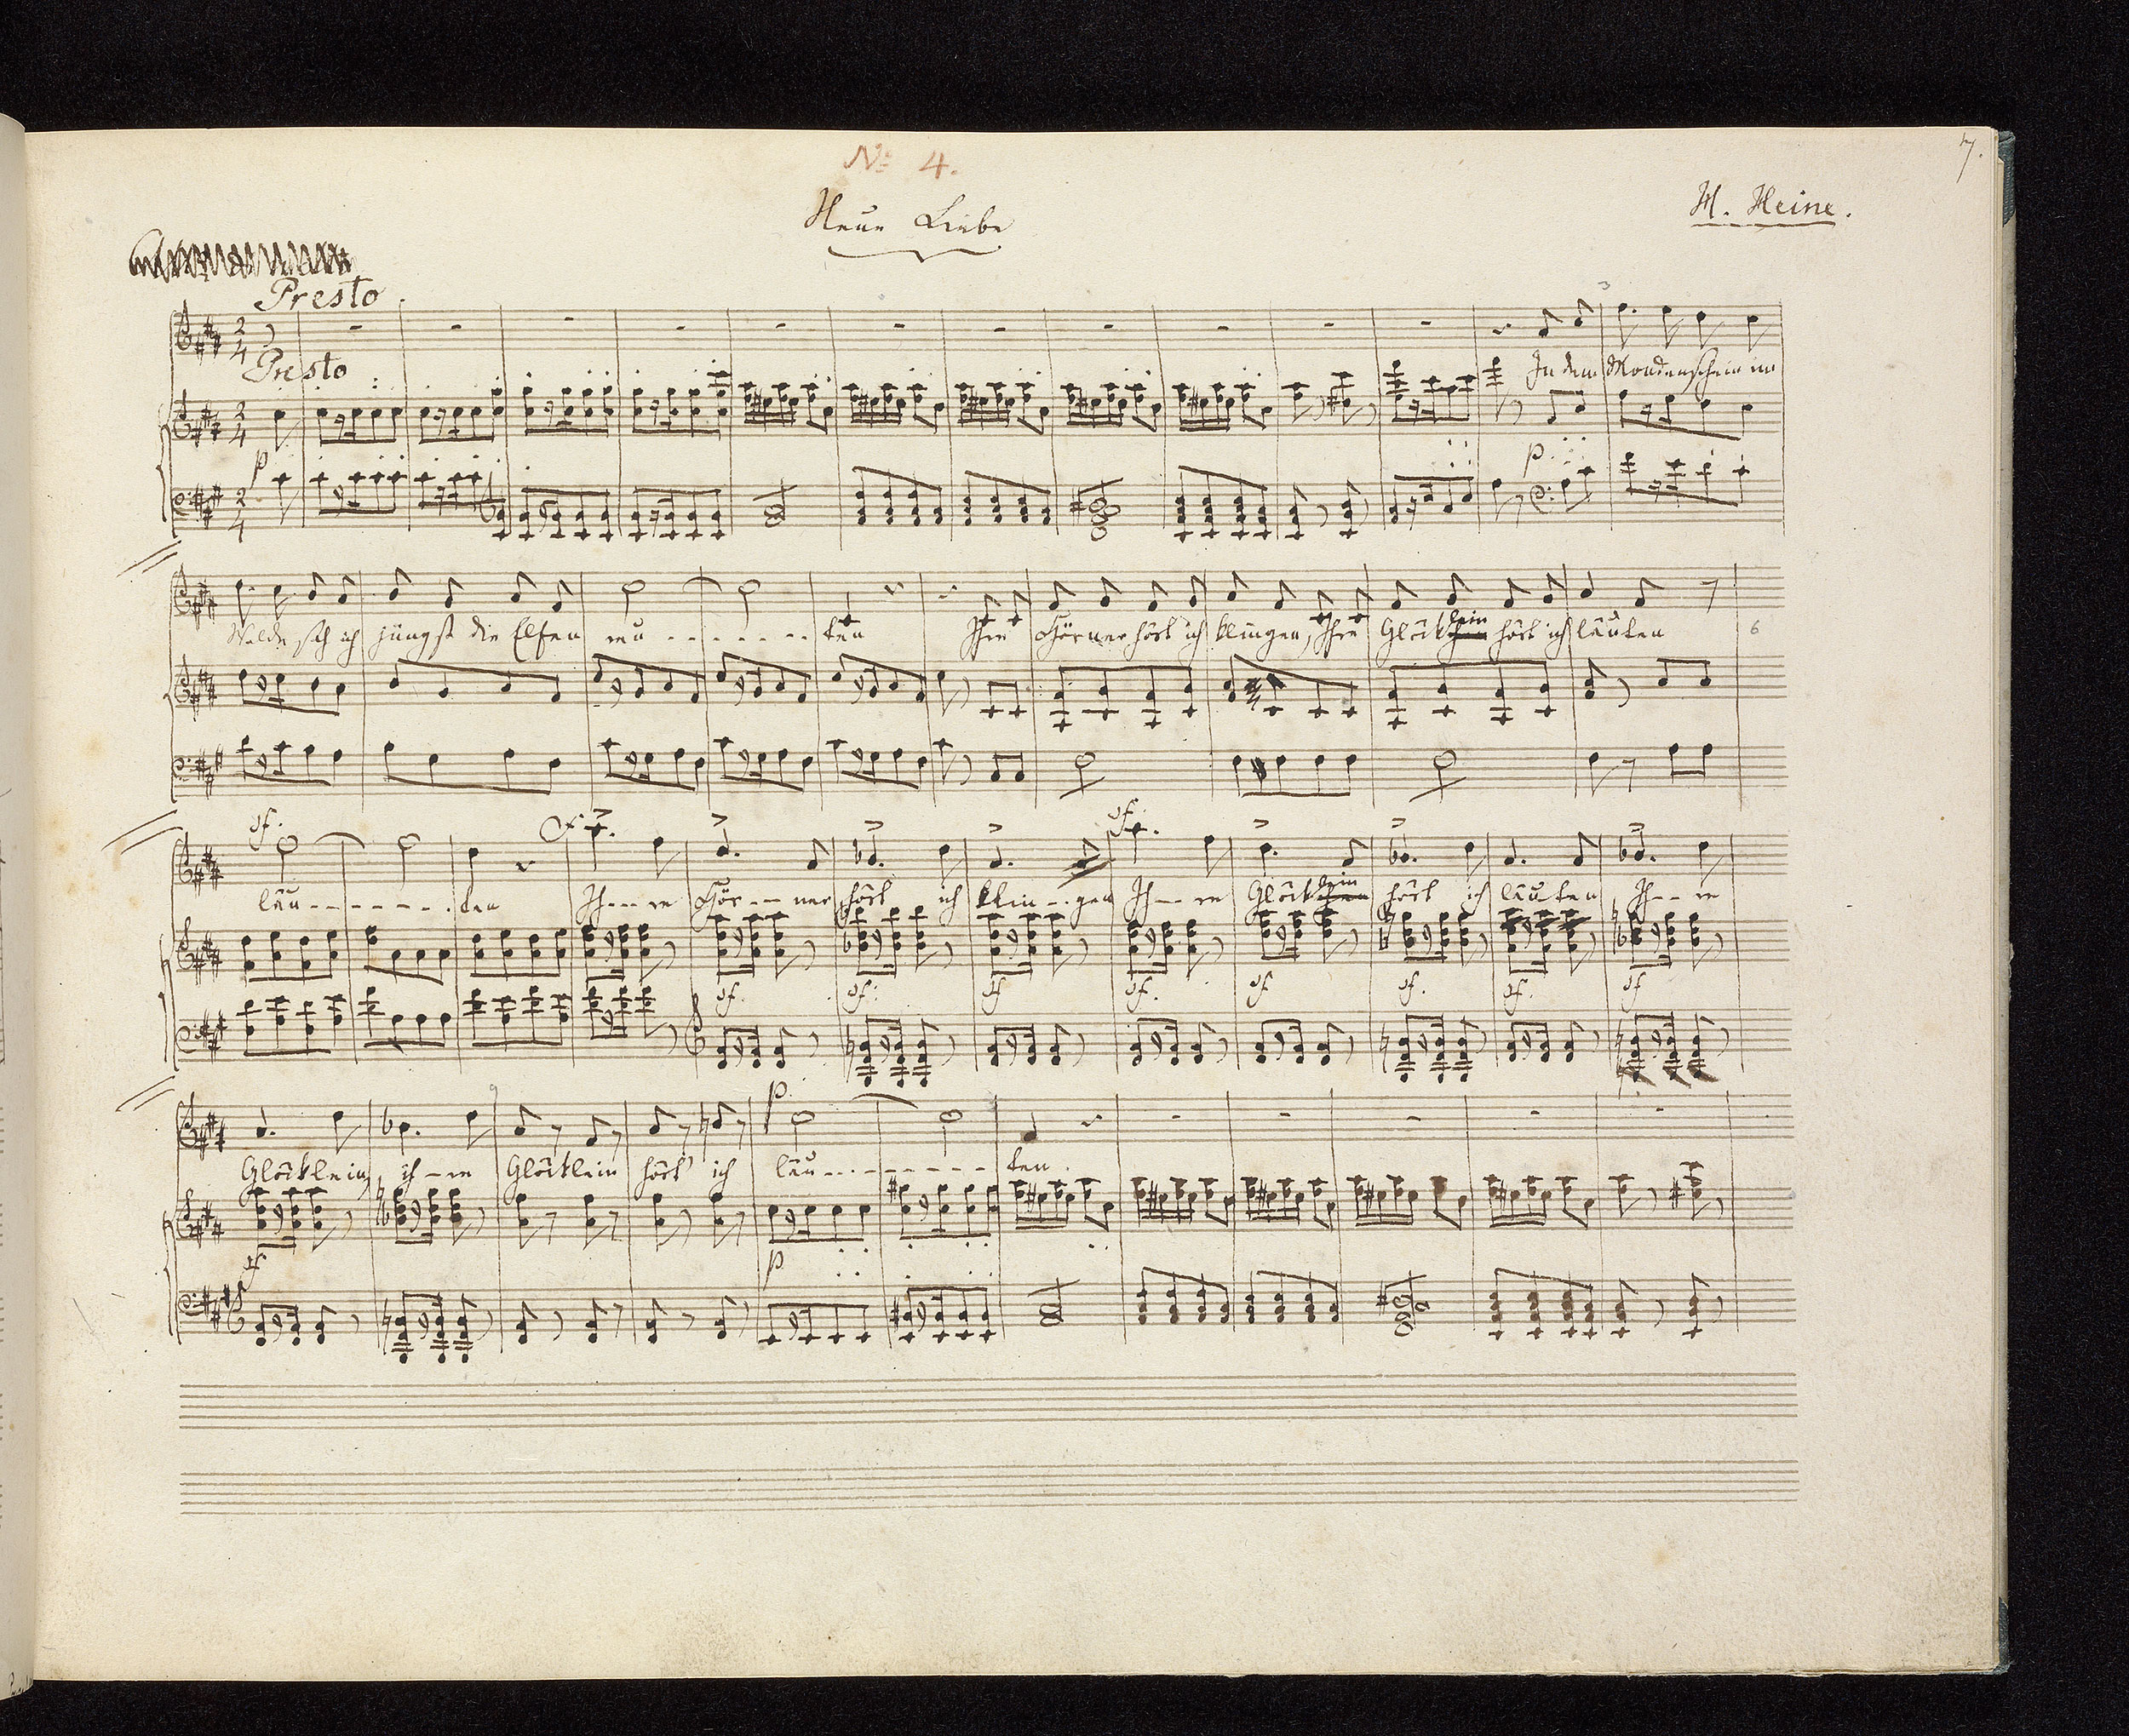 7.
No 4.
Neue Liebe
H. Heine.
Presto.
Presto
In dem Mondenschein im
Walde sah ich jüngst die Elfen reu - - - - - - - ten Ihre Hörner hört' ich klingen, Ihre Glöcklein hört' ich läuten
6
läu - - - - - - - ten Ih - - - re Hör - - - ner hört' ich klin - - gen Ih - - re Glöcklein hört' ich läuten Ih - - re
9
Glöcklein, ih - re Glöcklein hört' ich läu - - - - - - - - ten.